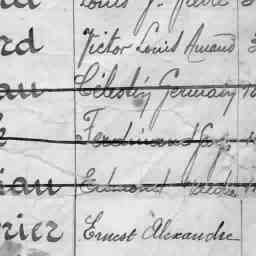 Louis J. Pierre
rd Victor Louis Amand
au Célestin Germain
Ferdinand
iau Edmond
rier Ernest Alexandre